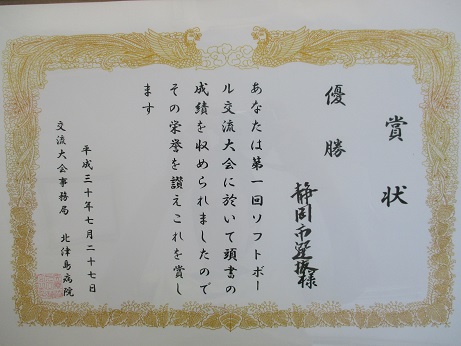 賞状
優勝
静岡市選抜様
あなたは第一回ソフトボー
ル交流大会に於いて頭書の
成績を収められましたので
その栄誉を讃えこれを賞し
ます
平成三十年七月二十七日
交流大会事務局 北津島病院